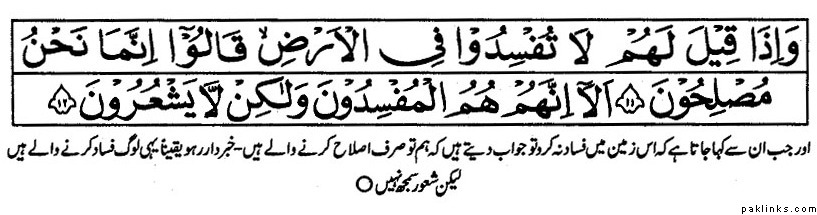 وَاِذَا قِيْلَ لَهُمْ لَا تُفْسِدُوْا فِى الْاَرْضِ ۙ قَالُوْٓا اِنَّمَا نَحْنُ
مُصْلِحُوْنَ ﴿۱۱﴾ اَلَآ اِنَّهُمْ هُمُ الْمُفْسِدُوْنَ وَلٰكِنْ لَّا يَشْعُرُوْنَ ﴿۱۲﴾
اور جب ان سے کہا جاتا ہے کہ اس زمین میں فساد نہ کرو تو جواب دیتے ہیں کہ ہم تو صرف اصلاح کرنے والے ہیں۔ خبردار رہو یقیناً یہی لوگ فساد کرنے والے ہیں
لیکن شعور سمجھ نہیں ○
paklinks.com